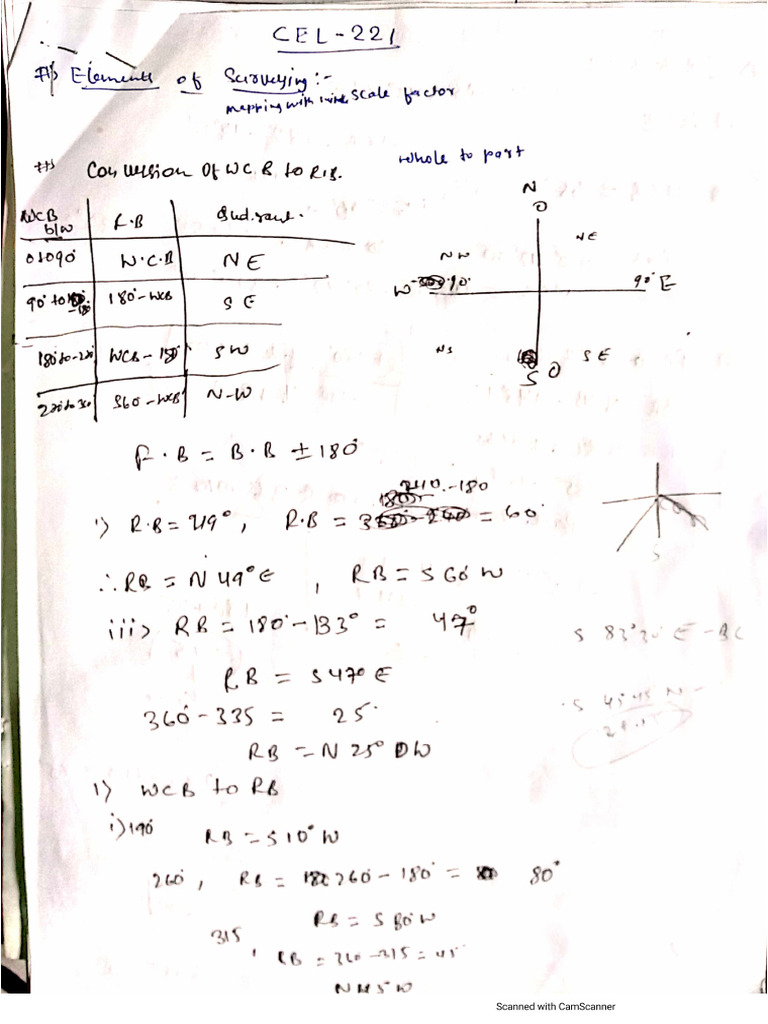 CEL-221
#) Elements of Surveying:-
mapping with scale factor
#) Conversion Of W C B to R.B.
Whole to part
WCB b/w | R.B | Qudrant.
0 to 90° | W.C.B | NE
90° to 180 | 180°-WCB | SE
180 to | WCB-180° | SW
| 360-WCB | N-W
N
O
NE
NW
W 90°
90° E
NS
SE
S O
F.B = B.B ± 180°
R.B = 49°, R.B = 240-180 = 60°
∴RB = N 49° E , RB = S 60 W
iii> RB = 180° - 133° = 47°
RB = S 47° E
360 - 335 = 25°
RB = N 25° W
S
S 83°30' E - BC
1) WCB to RB
i) 190° RB = S 10° W
260°, RB = 260° - 180° = 80°
RB = S 80° W
315, RB = 360 - 315 = 45
N 45 W
Scanned with CamScanner